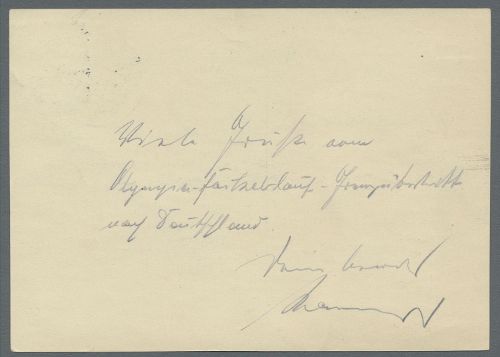 Viele Grüße vom
Olympia-Fackellauf-Grenzübertritt
nach Deutschland
Dein